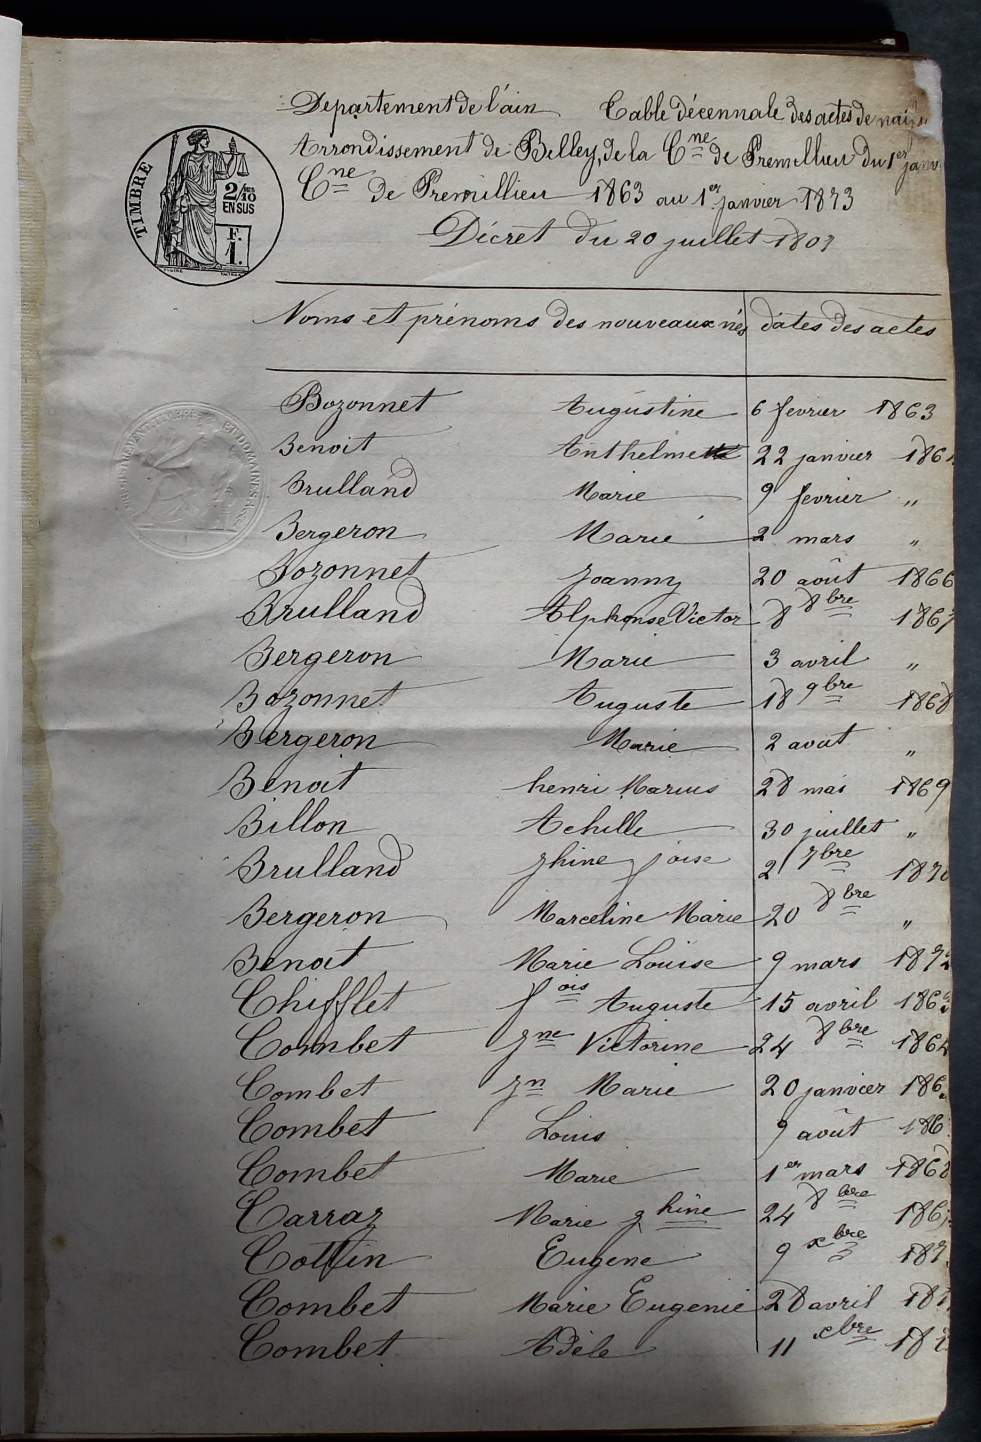 Département de l'ain Table décennale des actes de nais
Arrondissement de Belley, de la Cne de Premillieu du 1er janv
Cne de Premillieu 1863 au 1er janvier 1873
Décret du 20 juillet 1807
TIMBRE
2/10
EN SUS
F.
1.
Noms et prénoms des nouveaux nés dates des actes
Bozonnet Augustine 6 fevrier 1863
Benoit Anthelme 22 janvier 186
Brulland Marie 9 fevrier "
Bergeron Marie 2 mars "
Bozonnet Joanny 20 août 1866
Brulland Alphonse Victor 8 8bre 1867
Bergeron Marie 3 avril "
Bozonnet Auguste 18 9bre 1868
Bergeron Marie 2 août "
Benoit henri Marius 28 mai 1869
Billon Achille 30 juillet "
Brulland jhine 2 7bre 1870
Bergeron Marceline Marie 20 8bre "
Benoit Marie Louise 9 mars 1872
Chifflet fois Auguste 15 avril 1863
Combet jne Victorine 24 8bre 1864
Combet jn Marie 20 janvier 186
Combet Louis 9 août 186
Combet Marie 1er mars 1868
Carraz Marie jhine 24 8bre 186
Cottin Eugene 9 xbre 187
Combet Marie Eugenie 28 avril 187
Combet Adèle 11 xbre 187